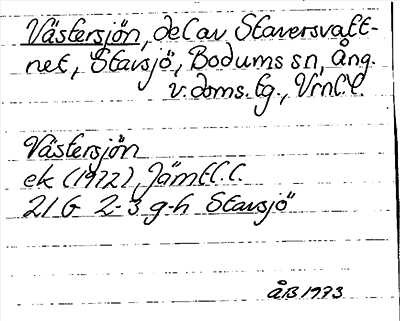 Västersjön, del av Stavarsvatt-
net, Stavsjö, Bodums sn, Ång.
v. doms. tg., Vrnl.l.
Västersjön
ek (1972), Jämtl.l.
21 G 2-3 g-h Stavsjö
ÅB 1973